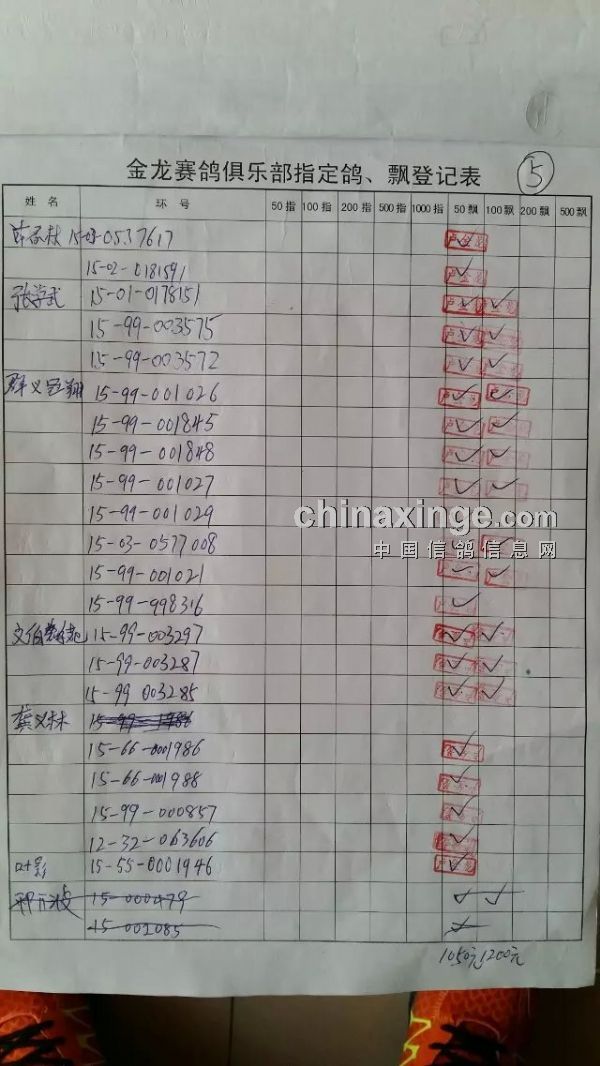 金龙赛鸽俱乐部指定鸽、飘登记表 5
姓名 环号 50指 100指 200指 500指 1000指 50飘 100飘 200飘 500飘
15-03-0537617
15-02-0181591
张学武 15-01-0178151
15-99-003575
15-99-003572
群义冠翔 15-99-001026
15-99-001845
15-99-001848
15-99-001027
15-99-001029
chinaxinge.com
15-03-0577008
中国信鸽信息网
15-99-001021
15-99-998316
15-99-003297
15-99-003287
15-99 003285
龚义林 15-99-1986
15-66-0001986
15-66-0001988
15-99-000857
12-32-063606
叶影 15-55-0001946
15-000479
15-001085
1050元 1200元